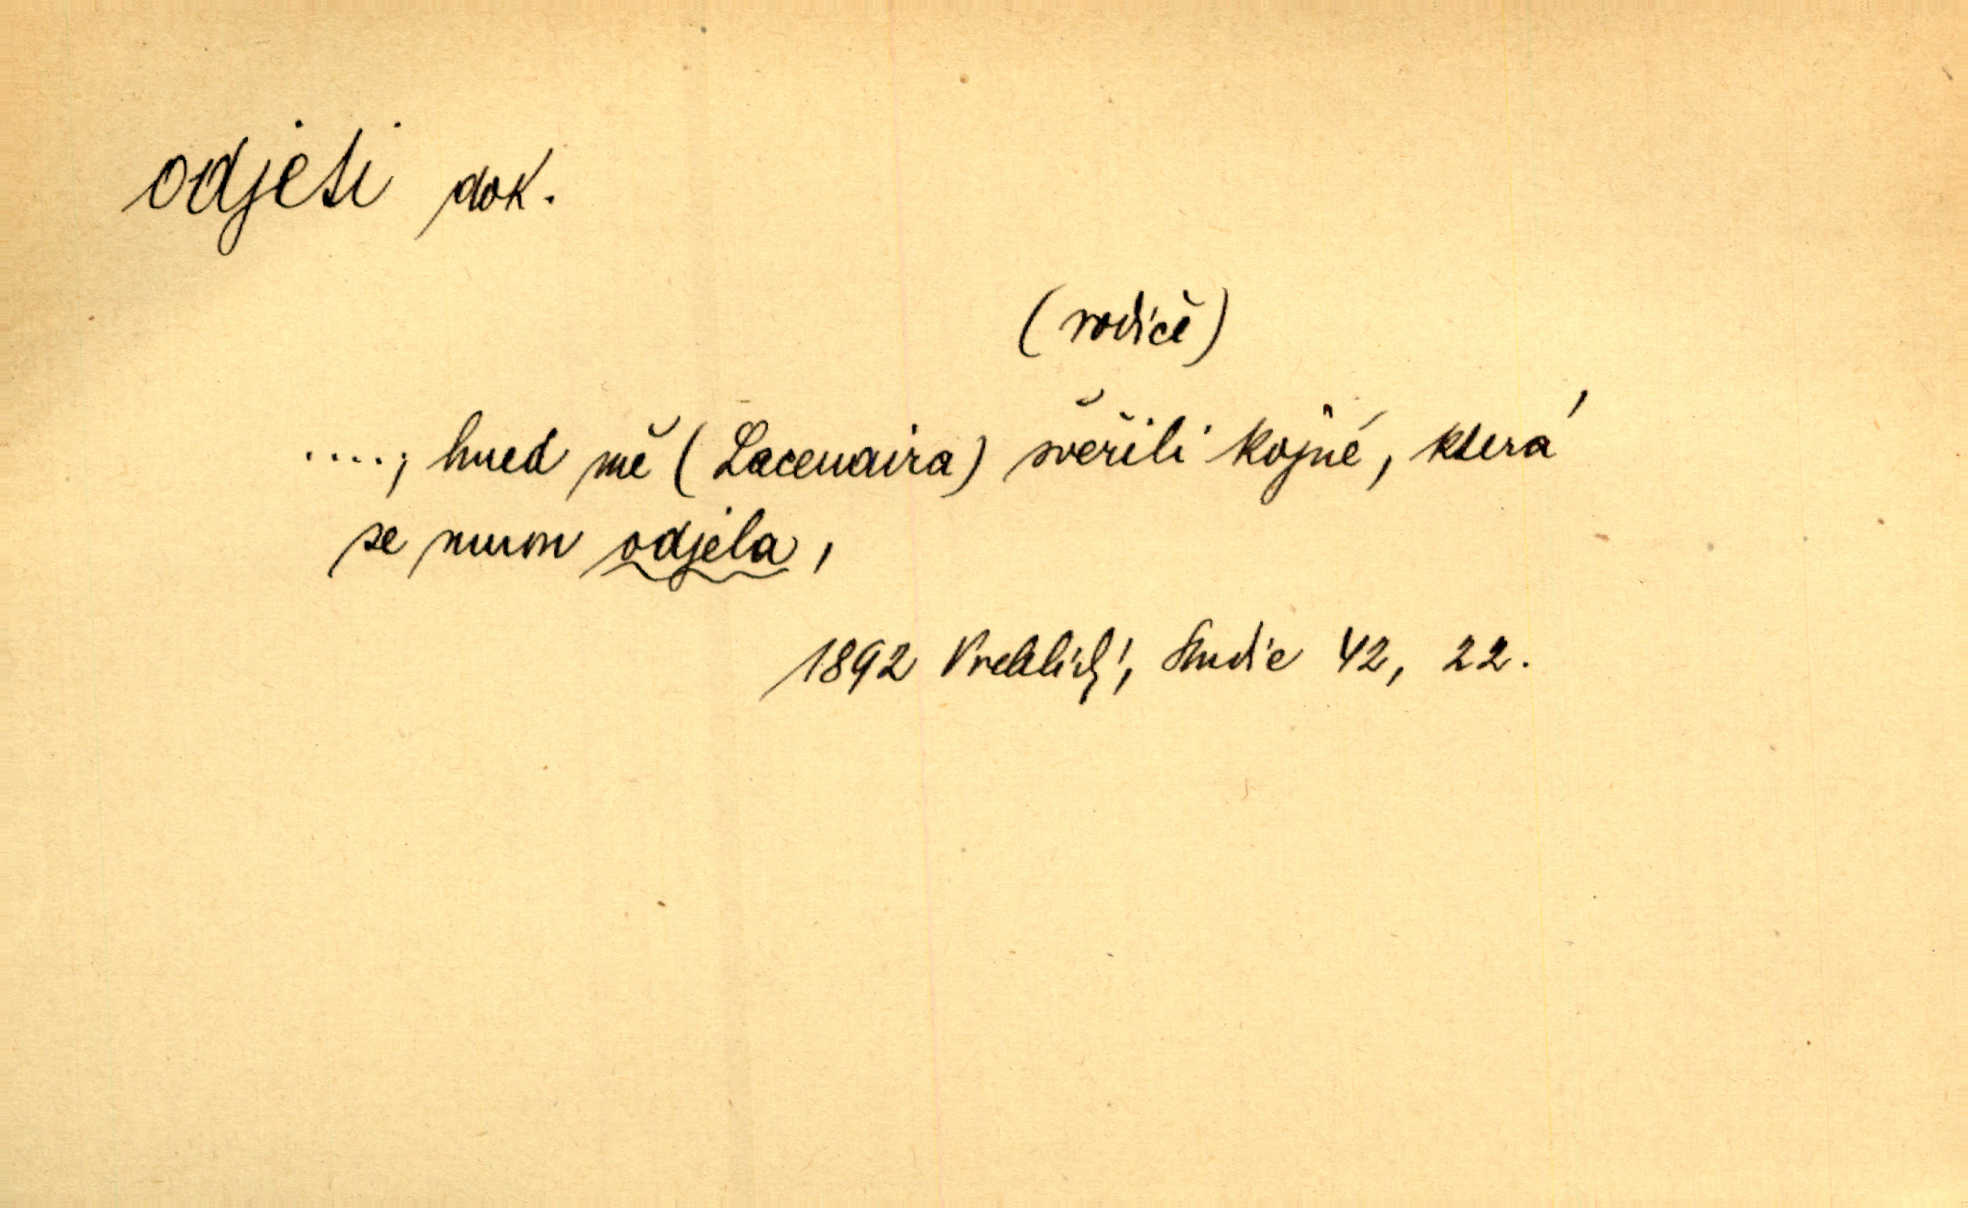 odjeti dok.
(rodiče)
....; hned mě (Lacenaira) svěřili kojné, která
se mnou odjela,
1892 Vrchlický, Studie 42, 22.